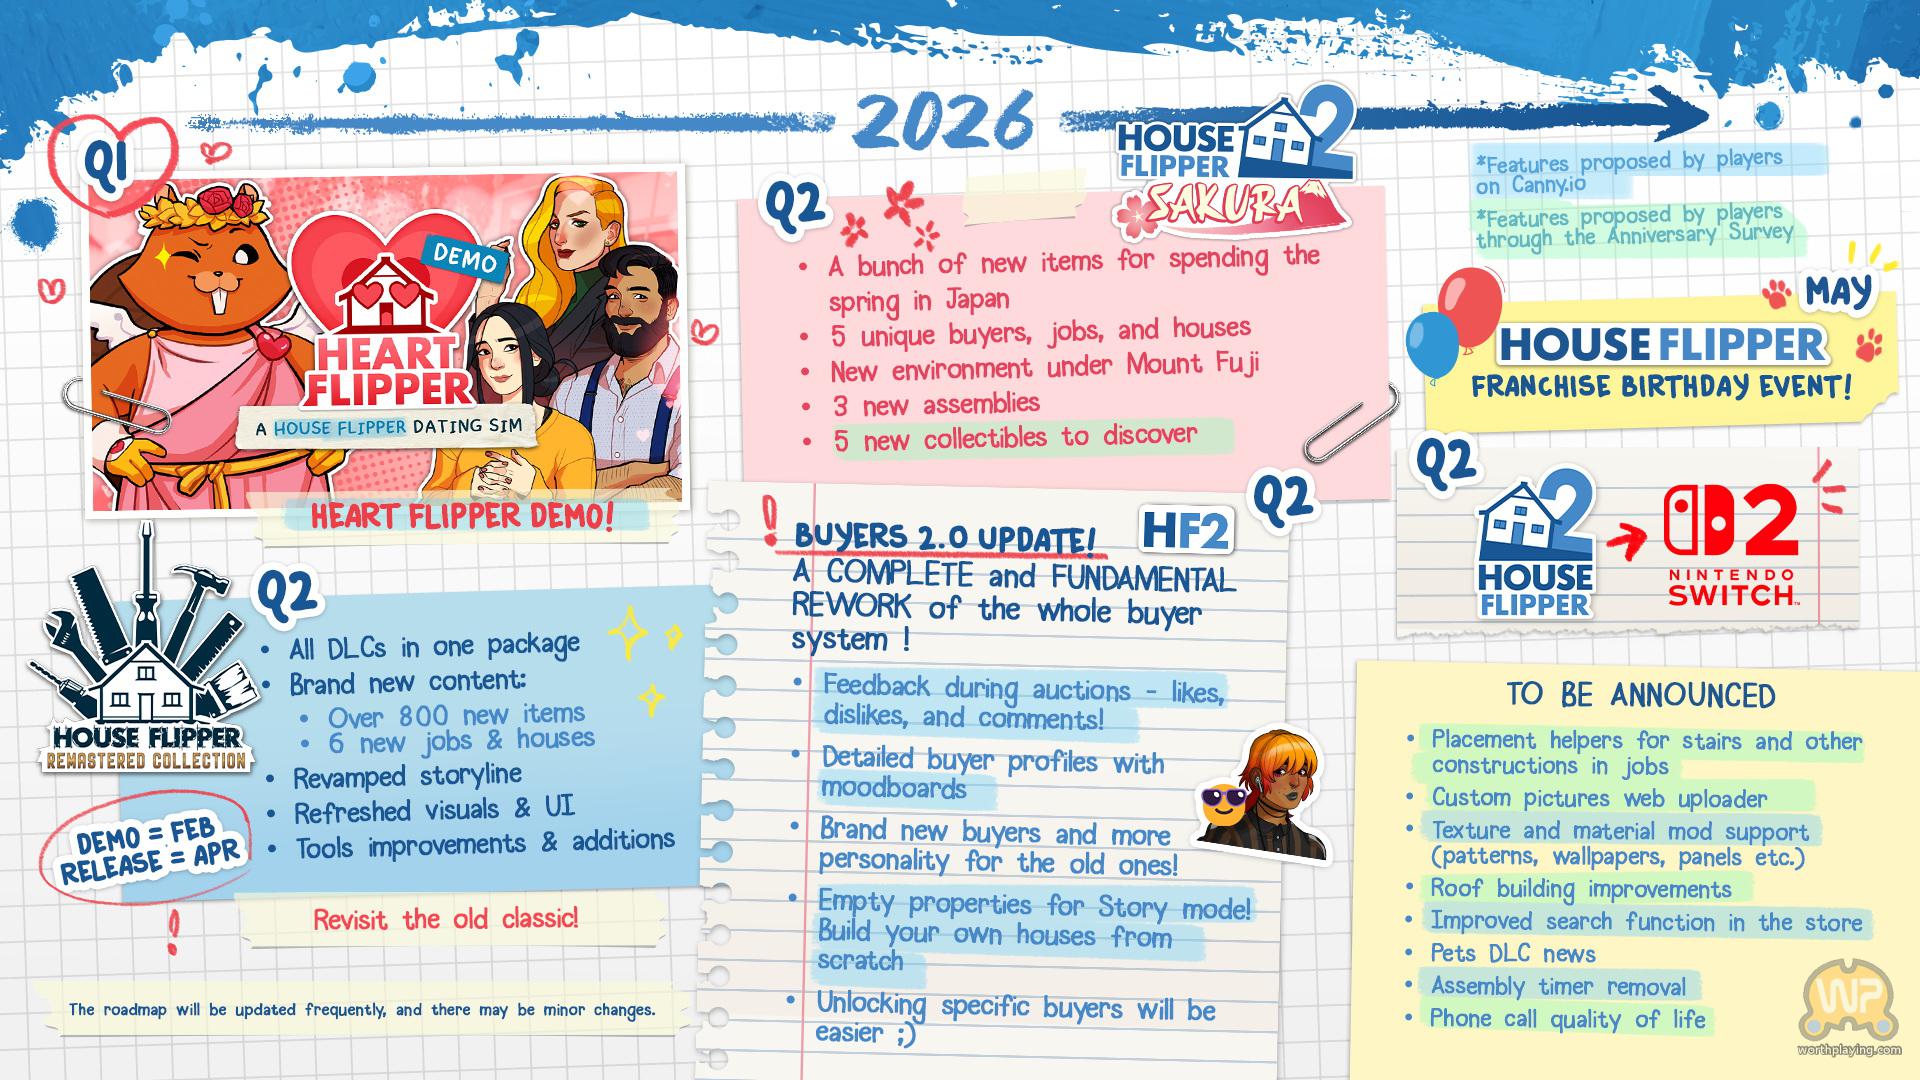 2026
Q1
DEMO
HEART
FLIPPER
A HOUSE FLIPPER DATING SIM
HEART FLIPPER DEMO!
Q2
HOUSE FLIPPER
REMASTERED COLLECTION
• All DLCs in one package
• Brand new content:
• Over 800 new items
• 6 new jobs & houses
• Revamped storyline
• Refreshed visuals & UI
• Tools improvements & additions
DEMO = FEB
RELEASE = APR
Revisit the old classic!
The roadmap will be updated frequently, and there may be minor changes.
Q2
HOUSE 2
FLIPPER
SAKURA
• A bunch of new items for spending the
spring in Japan
• 5 unique buyers, jobs, and houses
• New environment under Mount Fuji
• 3 new assemblies
• 5 new collectibles to discover
Q2
HF2
! BUYERS 2.0 UPDATE!
A COMPLETE and FUNDAMENTAL
REWORK of the whole buyer
system !
• Feedback during auctions - likes,
dislikes, and comments!
• Detailed buyer profiles with
moodboards
• Brand new buyers and more
personality for the old ones!
• Empty properties for Story mode!
Build your own houses from
scratch
• Unlocking specific buyers will be
easier ;)
*Features proposed by players
on Canny.io
*Features proposed by players
through the Anniversary Survey
MAY
HOUSE FLIPPER
FRANCHISE BIRTHDAY EVENT!
Q2
2
HOUSE
FLIPPER
2
NINTENDO
SWITCH™
TO BE ANNOUNCED
• Placement helpers for stairs and other
constructions in jobs
• Custom pictures web uploader
• Texture and material mod support
(patterns, wallpapers, panels etc.)
• Roof building improvements
• Improved search function in the store
• Pets DLC news
• Assembly timer removal
• Phone call quality of life
WP
worthplaying.com